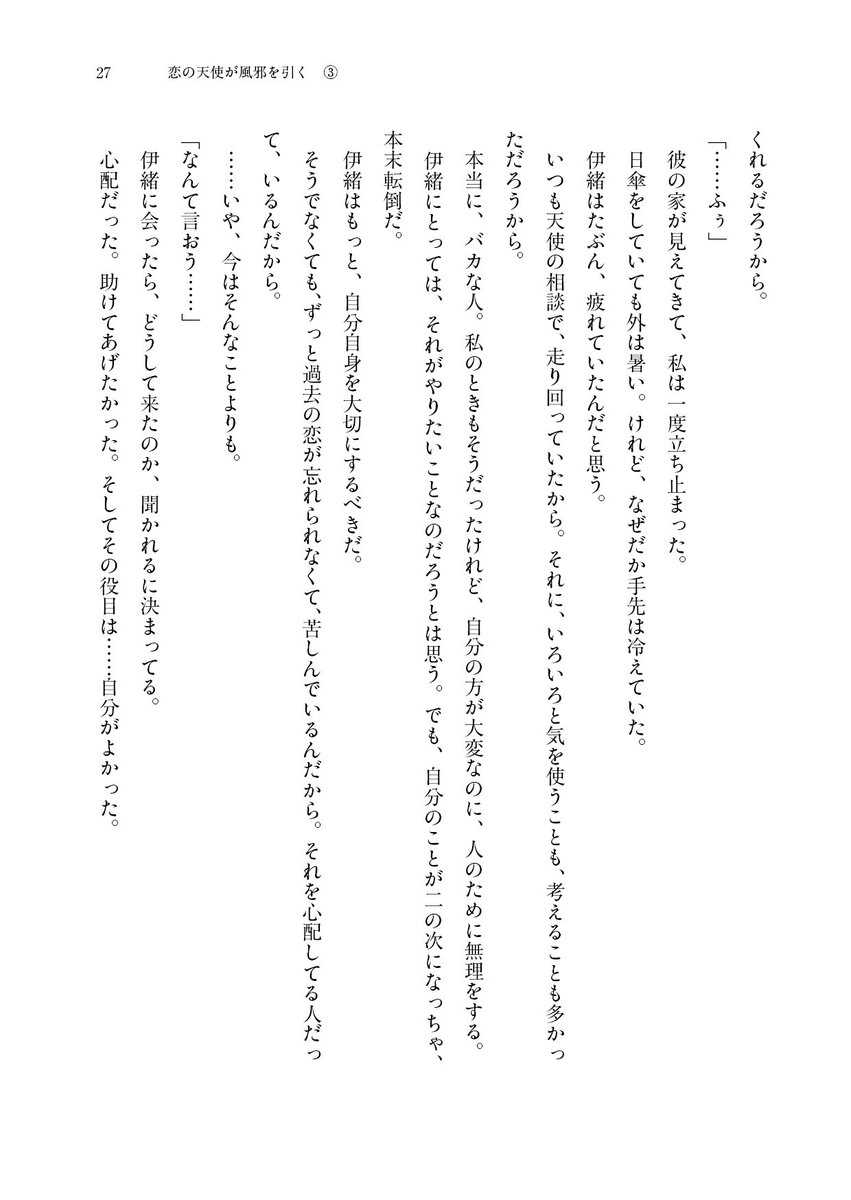 27　恋の天使が風邪を引く　③
くれるだろうから。
「……ふぅ」
　彼の家が見えてきて、私は一度立ち止まった。
　日傘をしていても外は暑い。けれど、なぜだか手先は冷えていた。
　伊緒はたぶん、疲れていたんだと思う。
　いつも天使の相談で、走り回っていたから。それに、いろいろと気を使うことも、考えることも多かっ
ただろうから。
　本当に、バカな人。私のときもそうだったけれど、自分の方が大変なのに、人のために無理をする。
　伊緒にとっては、それがやりたいことなのだろうとは思う。でも、自分のことが二の次になっちゃ、
本末転倒だ。
　伊緒はもっと、自分自身を大切にするべきだ。
　そうでなくても、ずっと過去の恋が忘れられなくて、苦しんでいるんだから。それを心配してる人だっ
て、いるんだから。
　……いや、今はそんなことよりも。
「なんて言おう……」
　伊緒に会ったら、どうして来たのか、聞かれるに決まってる。
　心配だった。助けてあげたかった。そしてその役目は……自分がよかった。